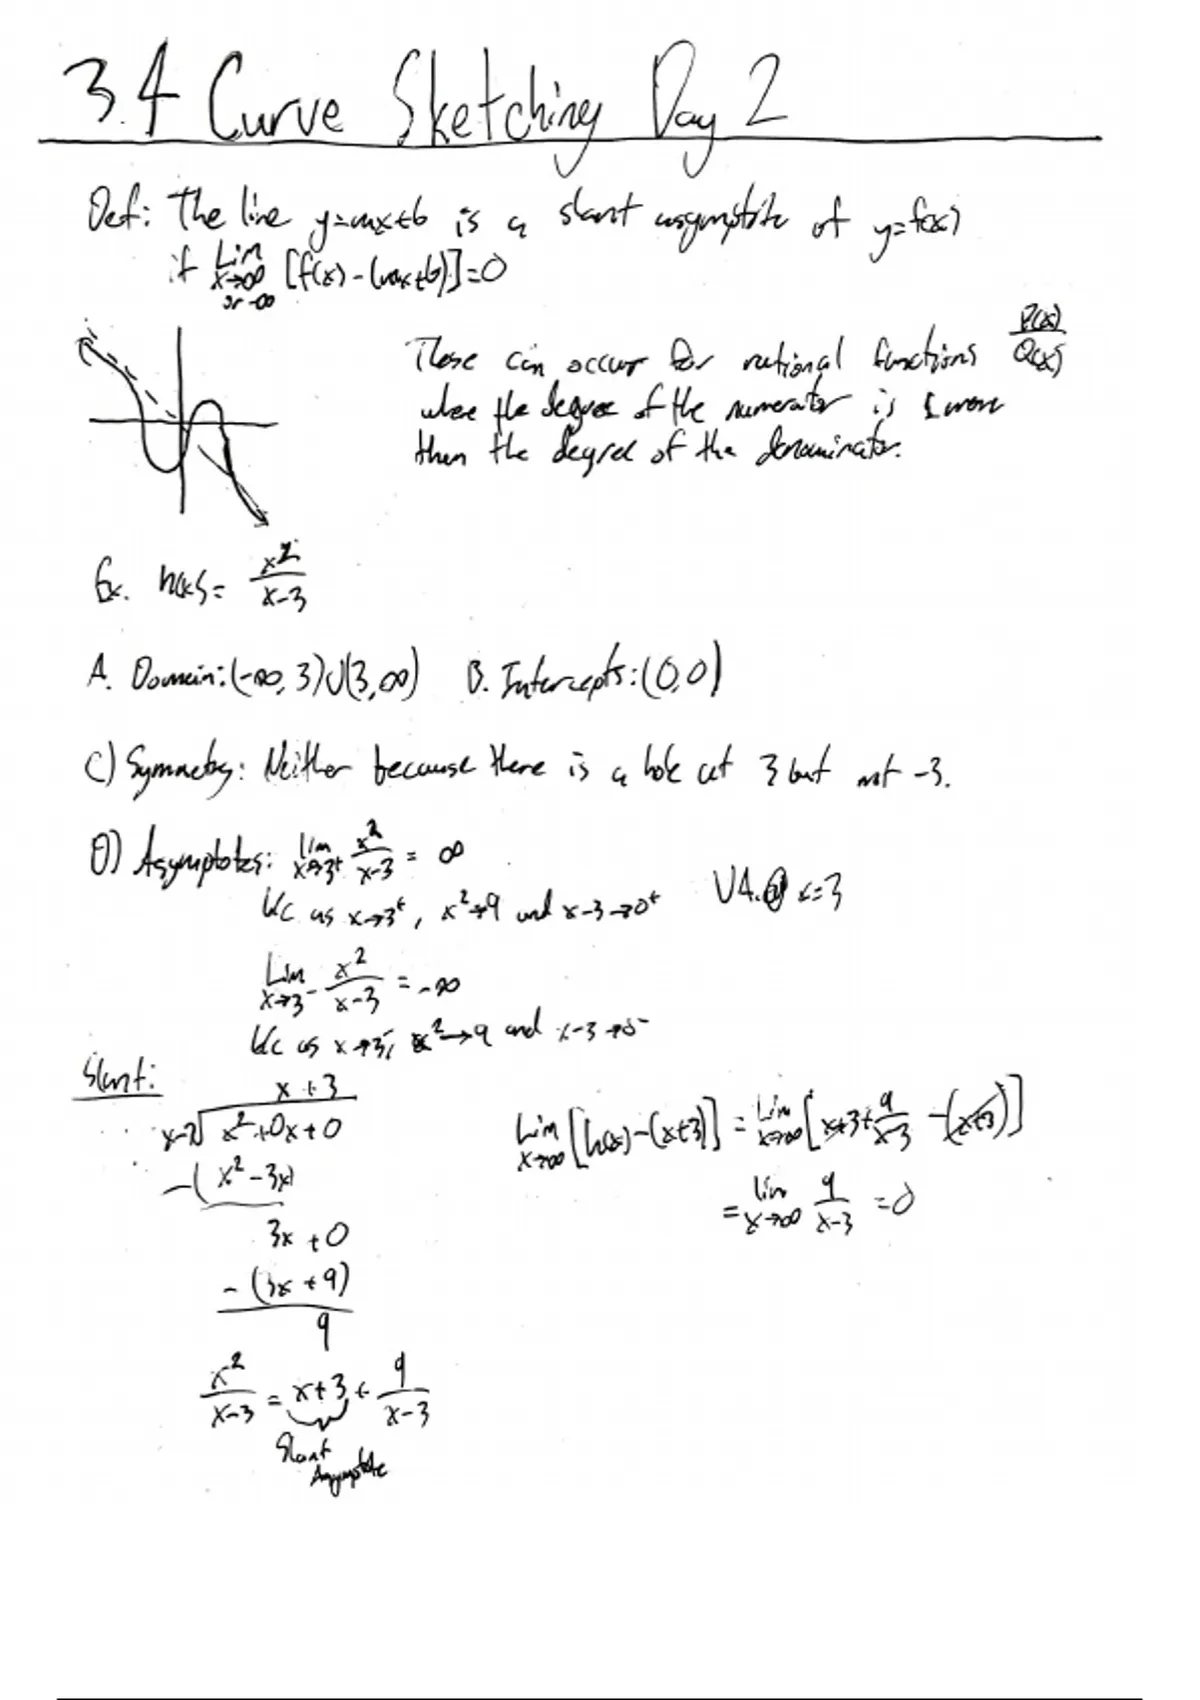 3.4 Curve Sketching Day 2
Def: The line y=mx+b is a slant asymptote of y=f(x)
if Lim x→∞ or -∞ [f(x)-(mx+b)]=0
These can occur for rational functions P(x)/Q(x)
where the degree of the numerator is 1 more
then the degree of the denominator.
Ex. h(x)= x²/x-3
A. Domain: (-∞, 3)∪(3,∞) B. Intercepts: (0,0)
C) Symmetry: Neither because there is a hole at 3 but not -3.
D) Asymptotes: lim x→3⁺ x²/x-3 = ∞
b/c as x→3⁺, x²→9 and x-3→0⁺ V.A. @ x=3
Lim x→3⁻ x²/x-3 = -∞
b/c as x→3⁻, x²→9 and x-3→0⁻
Slant:
x+3
x-3 √ x²+0x+0
-(x²-3x)
3x+0
-(3x+9)
9
x²/x-3 = x+3 + 9/x-3
Slant
Asymptote
Lim x→∞ [h(x)-(x+3)] = Lim x→∞ [x+3+ 9/x-3 -(x+3)]
= lim x→∞ 9/x-3 =0